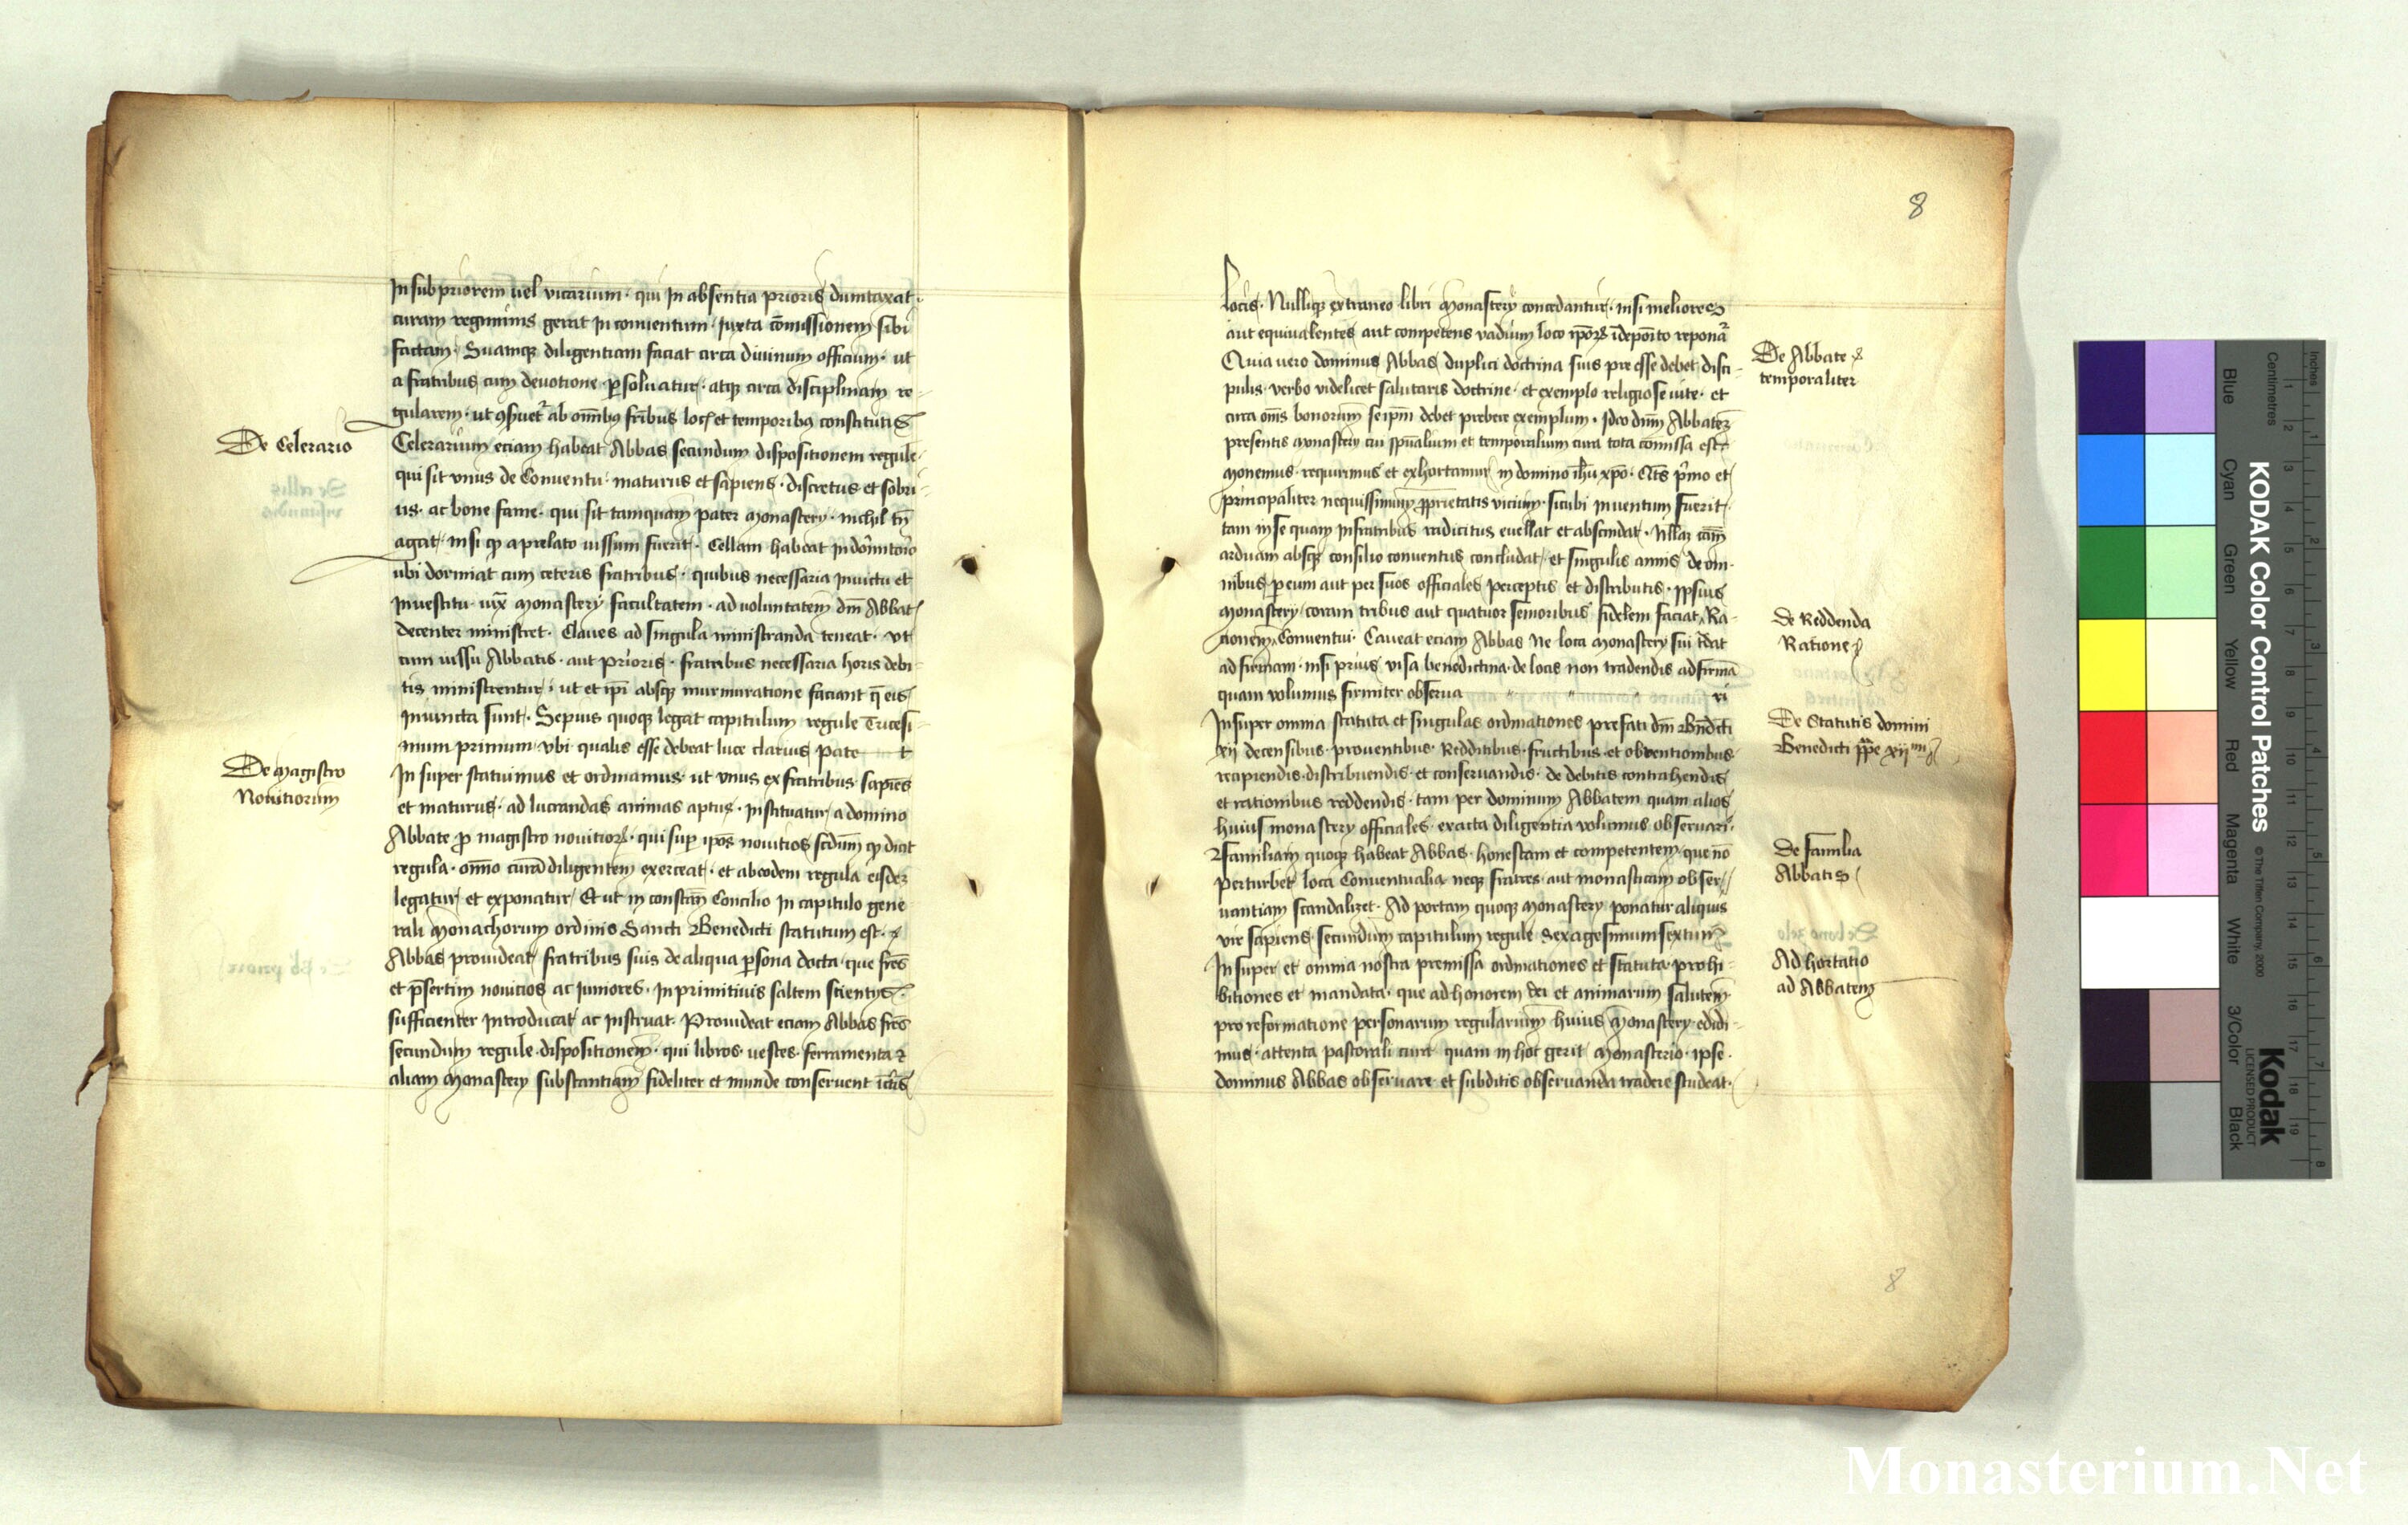 In subpriorem uel vicarium · qui In absentia prioris dumtaxat ·
curam regiminis gerat In conuentum · Juxta co̅missionem sibi
factam · Suamqȝ diligentiam faciat circa diuinum officium · ut
a fratribus cum deuotione ꝑsoluatur · atqȝ circa disciplinam re-
gularem · ut ꝯẜuet᷑ ab om̅ibꝯ fr̅ibus locꝭ et temporibꝯ constitutis
De Celerario
Celerarium eciam habeat Abbas secundum dispositionem regule ·
qui sit vnus de Conuentu · maturus et sapiens · discretus et sobri-
us · ac bone fame · qui sit tamquam pater monastery · nichil tn̅
agat nisi qꝫ a prelato iussum fuerit · Cellam habeat In dormitorio
ubi dormiat cum ceteris fratribus · quibus necessaria Inuictu et
Inuestitu · iux̅ monastery facultatem · ad voluntatem dn̅i Abbat
decenter ministret · Claues ad singula ministranda teneat · vt
cum iussu Abbatis · aut prioris · fratribus necessaria horis debi-
tis ministrentur · ut et ip̅i absqȝ murmuratione faciant q̅ eis
iniuncta sunt · Sepius quoqȝ legat capitulum regule Tricesi-
mum primum · vbi qualis esse debeat luce clarius pate t
De magistro
Nouitiorum
In super statuimus et ordinamus · ut vnus ex fratribus sapie̅s
et maturus · ad lucrandas animas aptus · Instituatur a domino
Abbate ꝓ magistro nouitioꝝ · qui suꝑ ip̅os nouitios scd̅um qꝫ dicit
regula · om̅o cura̅ diligentem exerceat · et ab eodem regula eisdeȝ
legatur et exponatur Et ut in constan̅ Concilio In capitulo gene
rali monachorum ordinis Sancti Benedicti statutum est ·
Abbas prouideat fratribus suis de aliqua ꝑsona docta que fr̅es
et p̅sertim nouitios ac Juniores · In primitiuis saltem scientys ·
sufficienter Introducat ac Instruat · Prouideat eciam Abbas fr̅es
secundum regule dispositionem · qui libros · uestes · ferramenta ⁊
aliam monastery substantiam fideliter et munde conseruent
8
locis · Nulliqȝ extraneo libri monastery concedantur · nisi meliores
aut equiualentes aut competens vadium loco ip̅oꝝ
Quia uero dominus Abbas duplici doctrina suis preesse debet disci-
pulis · verbo videlicet salutaris doctrine · et exemplo religiose uite · et
circa om̅s bonorum seip̅m debet prebere exemplum · Ideo dn̅m Abbateȝ
presentis monastery cui sp̅ualium et temporalium cura tota co̅missa est
monemus · requirimus et exhortamur in domino ih̅u xp̅o · p̅mo et
principaliter nequissimum ꝓprietatis vicium · sicubi inuentum fuerit
tam in se quam In fratribus radicitus euellat et abscindat ·
arduam absqȝ consilio conuentus concludat et singulis annis de om-
nibus ꝑ eum aut per suos officiales perceptis et distributis · Ipsius
monastery coram tribus aut quatuor senioribus fidelem faciat Ra-
tionem Conuentui · Caueat eciam Abbas Ne loca monastery sui
ad firmam · nisi prius visa benedictina de locis non tradendis ad firma̅
quam volumus firmiter obserua ri
Insuper omnia statuta et singulas ordinationes prefati dn̅i Bn̅dicti
xij de censibus · prouentibus · Redditibus · fructibus et obuentionibus ·
recipiendis · distribuendis · et conseruandis · de debitis contrahendis
et rationibus reddendis · tam per dominum Abbatem quam alios
huius monastery officiales · exacta diligentia volumus obseruari ·
Familiam quoqȝ habeat Abbas · honestam et competentem que no̅
perturbet loca Conuentualia neqȝ fratres · aut monasticam obser
uantiam scandalizet · Ad portam quoqȝ monastery ponatur aliquis
vir sapiens · secundum capitulum regule Sexagesimum sextum
In super et omnia nostra premissa ordinationes et statuta prohi-
bitiones et mandata · que ad honorem dei et animarum salutem
pro reformatione personarum regularium huius monastery edidi-
mus · attenta pastorali cura quam in hoc gerit monasterio · ipse ·
dominus Abbas obseruare et subditis obseruanda tradere studeat ·
De Abbate
temporaliter
de Reddenda
Ratione
De Statutis domini
Benedicti p̅pe xijmi
de familia
Abbatis
Ad hortatio
ad Abbatem
8
KODAK Color Control Patches
© The Tiffen Company, 2000
Kodak
LICENSED PRODUCT
Centimetres
Inches
Blue
Cyan
Green
Yellow
Red
Magenta
White
3/Color
Black
Monasterium.Net